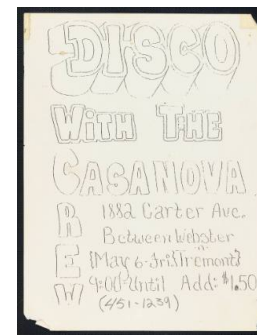 DISCO
WITH THE
CASANOVA
CREW
1882 Carter Ave.
Between Webster
" Tremont
May 6-Fri
9:00 Until Add: $1.50
(451-1239)